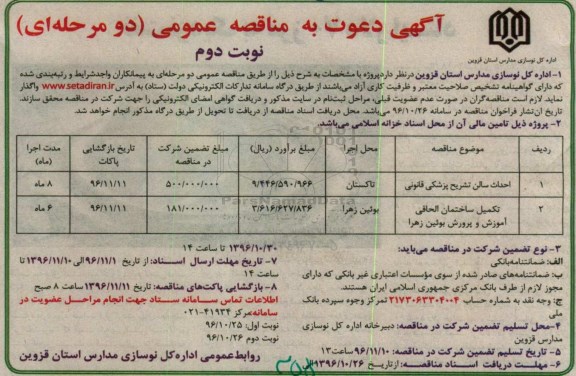 آگهی دعوت به مناقصه عمومی (دو مرحله‌ای)
نوبت دوم
اداره کل نوسازی مدارس استان قزوین
۱- اداره کل نوسازی مدارس استان قزوین درنظر دارد پروژه با مشخصات به شرح ذیل را از طریق مناقصه عمومی دو مرحله‌ای به پیمانکاران واجدشرایط و رتبه‌بندی شده
که دارای گواهینامه تشخیص صلاحیت معتبر و ظرفیت کاری آزاد می‌باشند از طریق درگاه سامانه تدارکات الکترونیکی دولت (ستاد) به آدرس www.setadiran.ir واگذار
نماید. لازم است مناقصه‌گران در صورت عدم عضویت قبلی، مراحل ثبت‌نام در سایت مذکور و دریافت گواهی امضای الکترونیکی را جهت شرکت در مناقصه محقق سازند.
تاریخ انتشار فراخوان مناقصه در سامانه ۹۶/۱۰/۲۶ می باشد. محل دریافت اسناد مناقصه از دریافت تا تحویل از طریق درگاه مذکور انجام خواهد شد.
۲- پروژه ذیل تامین مالی آن از محل اسناد خزانه اسلامی می‌باشد.
ردیف موضوع مناقصه محل اجرا مبلغ برآورد (ریال) مبلغ تضمین شرکت در مناقصه تاریخ بازگشایی پاکات مدت اجرا (ماه)
۱ احداث سالن تشریح پزشکی قانونی تاکستان ۹/۴۴۶/۵۹۰/۹۶۶ ۵۰۰/۰۰۰/۰۰۰ ۹۶/۱۱/۱۱ ۸ ماه
۲ تکمیل ساختمان الحاقی آموزش و پرورش بوئین زهرا بوئین زهرا ۳/۶۱۶/۶۲۷/۸۳۶ ۱۸۱/۰۰۰/۰۰۰ ۹۶/۱۱/۱۱ ۶ ماه
۳- نوع تضمین شرکت در مناقصه می‌باید:
الف: ضمانتنامه‌بانکی
ب: ضمانتنامه‌های صادر شده از سوی مؤسسات اعتباری غیر بانکی که دارای
مجوز لازم از طرف بانک مرکزی جمهوری اسلامی ایران هستند.
ج: وجه نقد به شماره حساب ۲۱۷۳۰۶۳۳۰۴۰۰۴ تمرکز وجوه سپرده بانک
ملی
۴- محل تسلیم تضمین شرکت در مناقصه: دبیرخانه اداره کل نوسازی
مدارس قزوین
۵- تاریخ تسلیم تضمین شرکت در مناقصه: ۹۶/۱۱/۱۰ ساعت ۱۳
۶- مهلت دریافت اسناد مناقصه: ازتاریخ ۱۳۹۶/۱۰/۲۶ الی
۱۳۹۶/۱۰/۳۰ تا ساعت ۱۴
۷- تاریخ مهلت ارسال اسناد: از تاریخ ۹۶/۱۱/۱ الی ۱۳۹۶/۱۱/۱۰ تا
ساعت ۱۴
۸- بازگشایی پاکت‌های مناقصه: تاریخ ۱۳۹۶/۱۱/۱۱ ساعت ۸ صبح
اطلاعات تماس سامانه ستاد جهت انجام مراحل عضویت در
سامانه مرکز ۴۱۹۳۴-۰۲۱
نوبت اول: ۹۶/۱۰/۲۵
نوبت دوم ۹۶/۱۰/۲۶
روابط عمومی اداره کل نوسازی مدارس استان قزوین
ParsNamadData